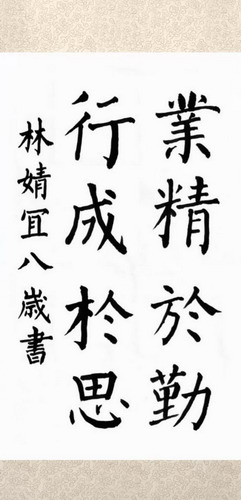 業精於勤
行成於思
林婧冝八歳書